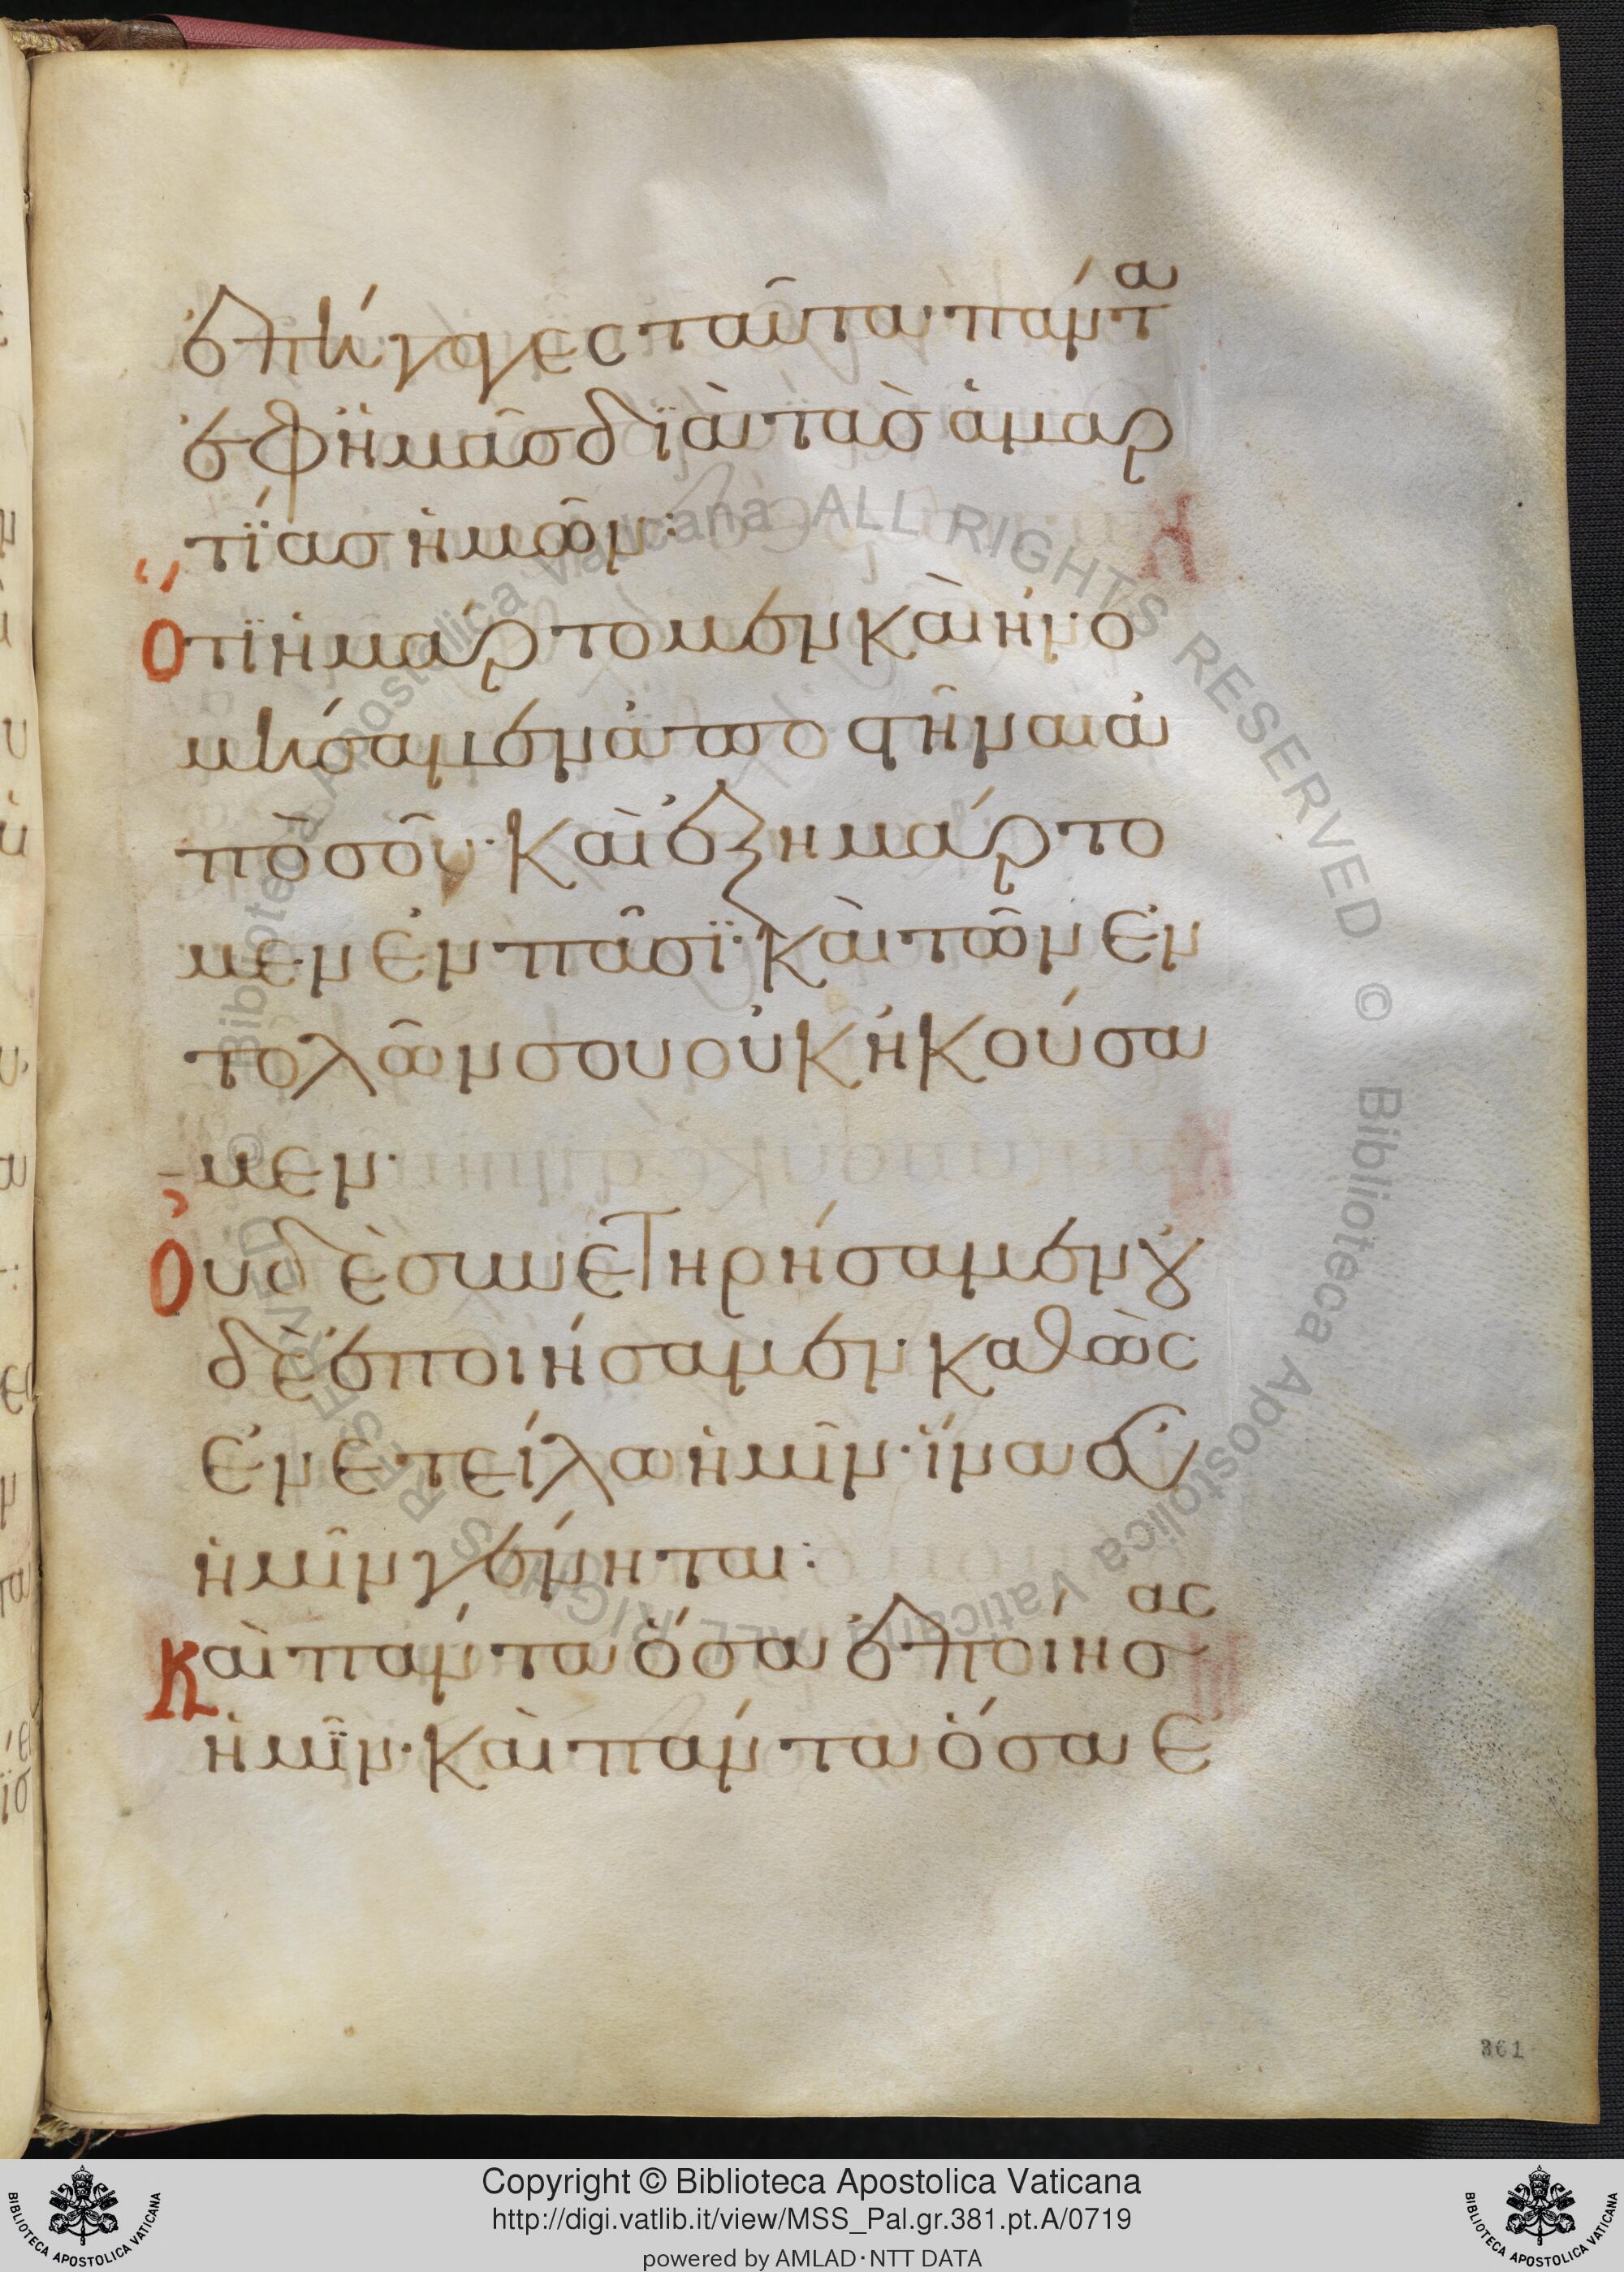 ἐπήγαγες ταῦτα πάντα
ἐφ ἡμᾶσ δϊὰ τὰσ ἁμαρ
τΐασ ἡμῶν:
Ὅτϊ ἡμάρτομεν καὶ ἠνο
μήσαμεν ἀποστῆναι ἀ
πὸ σοῦ· καὶ ἐξημάρτο
μεν ἐν πᾶσϊ· καὶ τῶν ἐν
τολῶν σου οὐκ ἠκούσα
μεν·
Ὀυδὲ συνετηρήσαμεν ȣ̓
δὲ ἐποιήσαμεν· καθὼς
ἐνετείλω ἡμῖν· ἵνα εὖ
ἡμῖν γένηται:
Καὶ πάντα ὅσα ἐποίησας
ἡμῖν· καὶ πάντα ὅσα ε
361
© Biblioteca Apostolica Vaticana ALL RIGHTS RESERVED © Biblioteca Apostolica Vaticana ALL RIGHTS RESERVED
Copyright © Biblioteca Apostolica Vaticana
http://digi.vatlib.it/view/MSS_Pal.gr.381.pt.A/0719
powered by AMLAD·NTT DATA
BIBLIOTECA APOSTOLICA VATICANA
BIBLIOTECA APOSTOLICA VATICANA